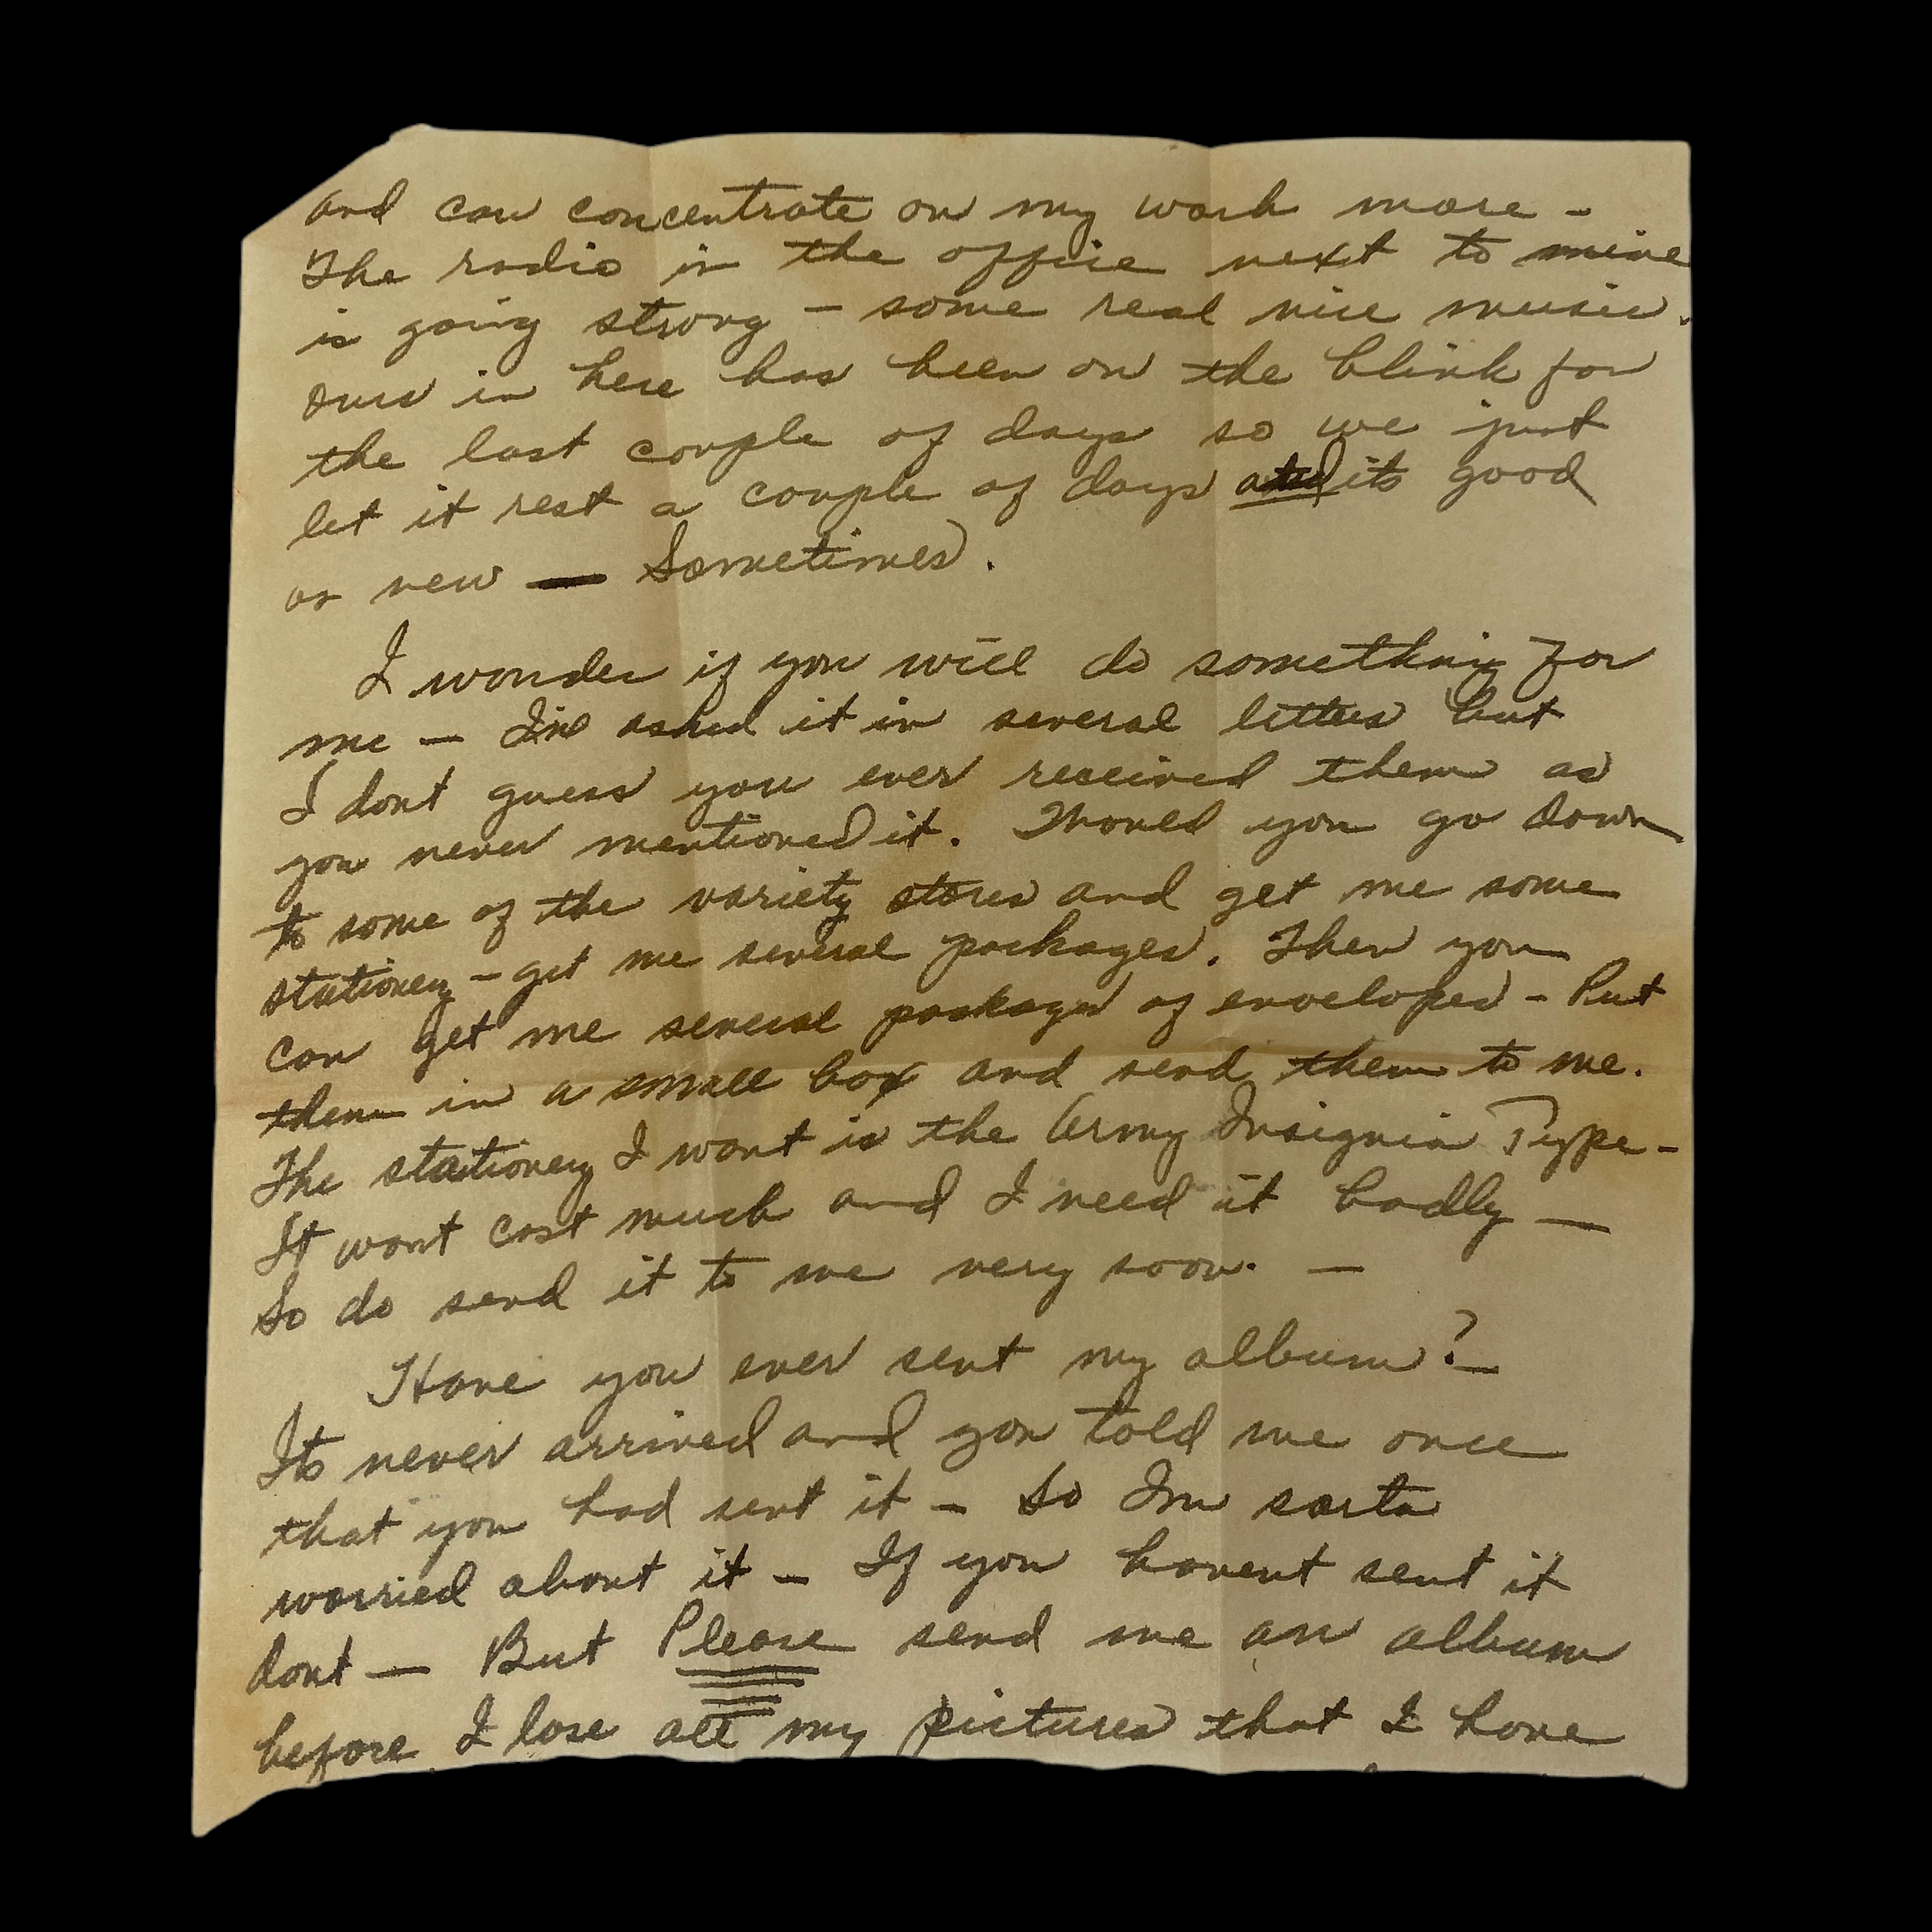 and can concentrate on my work more -
The radio in the office next to mine
is going strong - some real nice music.
Ours in here has been on the blink for
the last couple of days so we just
let it rest a couple of days and its good
as new — Sometimes.
I wonder if you will do something for
me - Ive asked it in several letters but
I dont guess you ever received them as
you never mentioned it. Would you go down
to some of the variety stores and get me some
stationery - get me several packages. Then you
can get me several packages of envelopes - Put
them in a small box and send them to me.
The stationery I want is the Army Insignia Type -
It wont cost much and I need it badly —
So do send it to me very soon. —
Have you ever sent my album?
Its never arrived and you told me once
that you had sent it - So Im sorta
worried about it - If you havent sent it
dont — But Please send me an album
before I lose all my pictures that I have